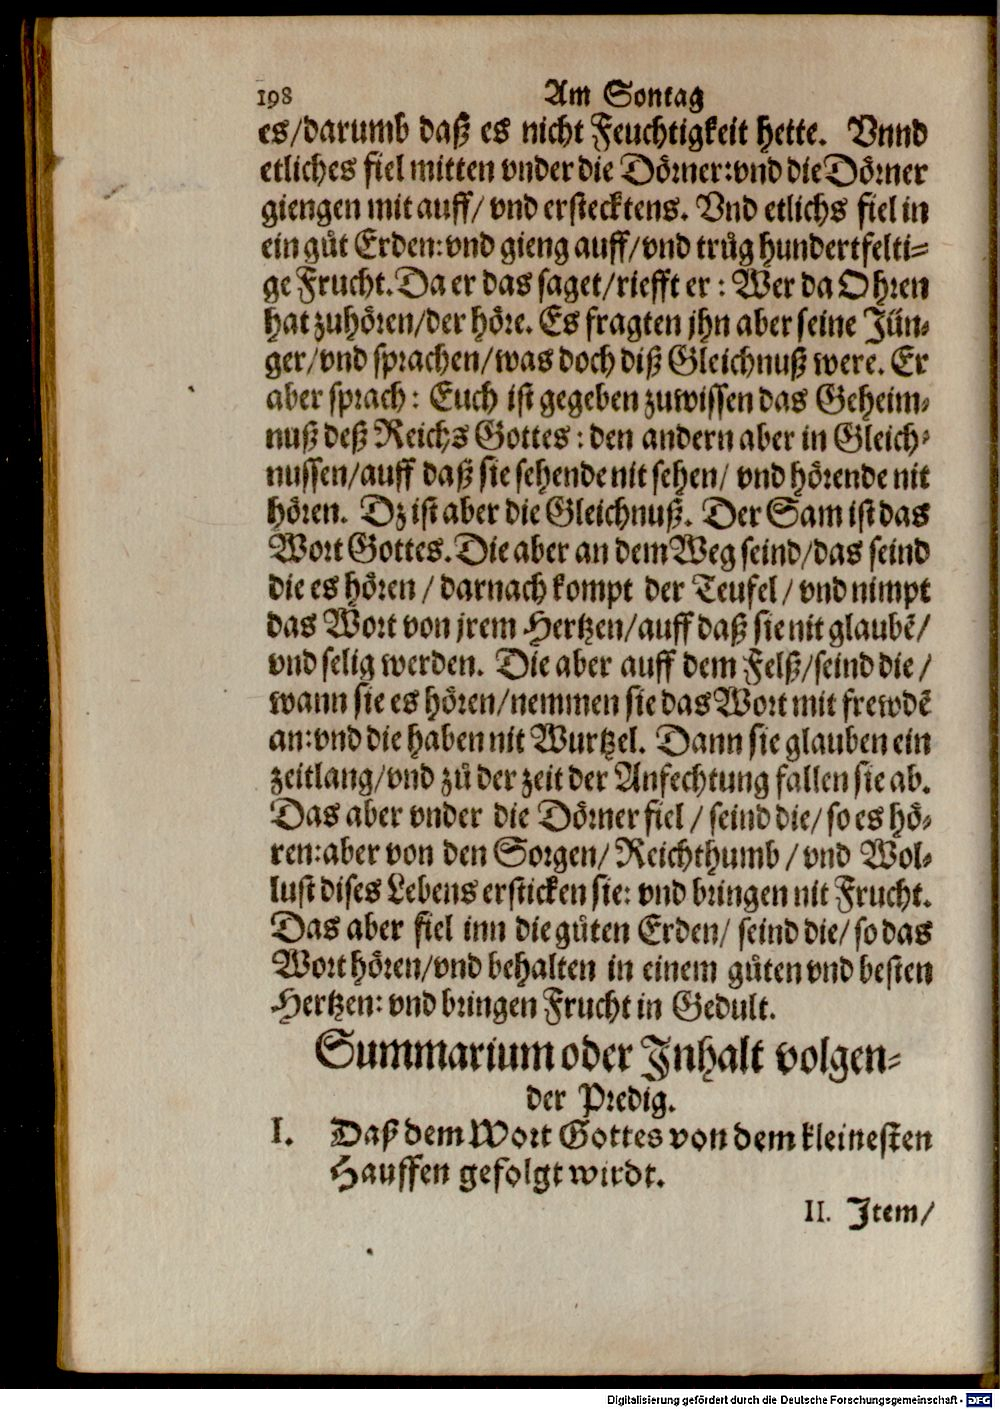 198 Am Sontag
es/darumb daß es nicht Feuchtigkeit hette. Vnnd
etliches fiel mitten vnder die Dörner: vnd die Dörner
giengen mit auff/ vnd erstecktens. Vnd etlichs fiel in
ein gůt Erden: vnd gieng auff/vnd trůg hundertfelti=
ge Frucht. Da er das saget/riefft er: Wer da Ohren
hat zuhören/der höre. Es fragten jhn aber seine Jün=
ger/vnd sprachen/was doch diß Gleichnuß were. Er
aber sprach: Euch ist gegeben zuwissen das Geheim=
nuß deß Reichs Gottes: den andern aber in Gleich=
nussen/auff daß sie sehende nit sehen/ vnd hörende nit
hören. Dz ist aber die Gleichnuß. Der Sam ist das
Wort Gottes. Die aber an dem Weg seind/das seind
die es hören/ darnach kompt der Teufel/ vnd nimpt
das Wort von jrem Hertzen/auff daß sie nit glaubẽ/
vnd selig werden. Die aber auff dem Felß/seind die/
wann sie es hören/nemmen sie das Wort mit frewdẽ
an: vnd die haben nit Wurtzel. Dann sie glauben ein
zeitlang/vnd zů der zeit der Anfechtung fallen sie ab.
Das aber vnder die Dörner fiel/ seind die/ so es hö=
ren: aber von den Sorgen/ Reichthumb/ vnd Wol=
lust dises Lebens ersticken sie: vnd bringen nit Frucht.
Das aber fiel inn die gůten Erden/ seind die/ so das
Wort hören/vnd behalten in einem gůten vnd besten
Hertzen: vnd bringen Frucht in Gedult.
Summarium oder Jnhalt volgen=
der Predig.
I. Daß dem Wort Gottes von dem kleinesten
Hauffen gefolgt wirdt.
II. Jtem/
Digitalisierung gefördert durch die Deutsche Forschungsgemeinschaft - DFG